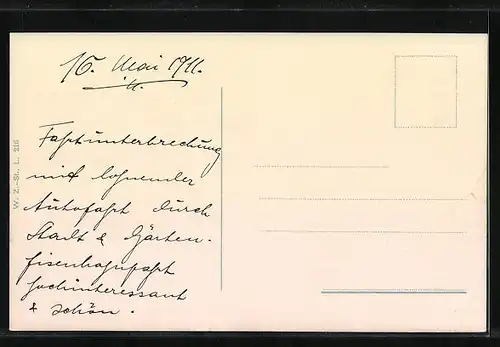 16. Mai 1911.
Fahrtunterbrechung
mit lohnender
Autofahrt durch
Stadt & Gärten.
Eisenbahnfahrt
hochinteressant
& schön.
W. Z.-St. L. 216